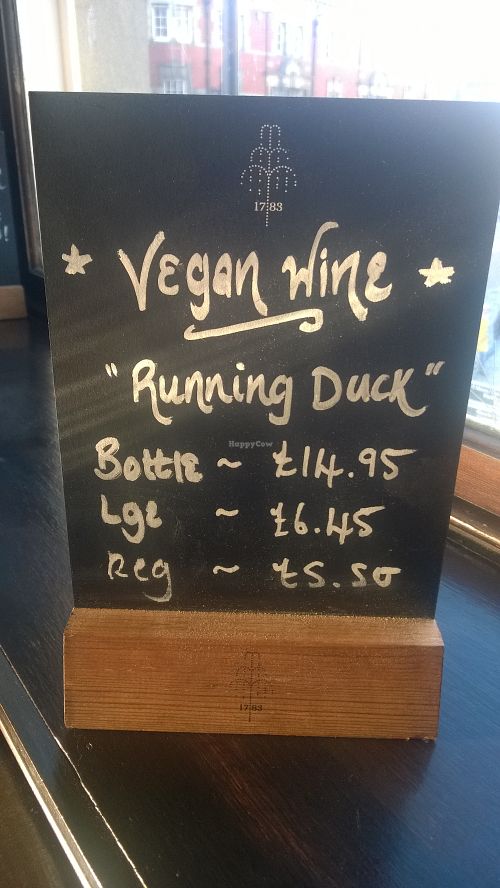 1783
* Vegan Wine *
"Running Duck"
Bottle ~ £14.95
HappyCow
Lge ~ £6.45
Reg ~ £5.50
1783